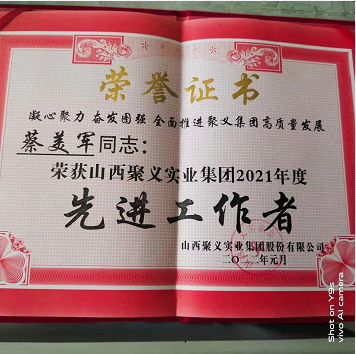 荣誉证书
凝心聚力 奋发图强 全面推进聚义集团高质量发展
蔡美军同志：
荣获山西聚义实业集团2021年度
先进工作者
山西聚义实业集团股份有限公司
二〇二二年元月
Shot on Y9s
vivo AI camera